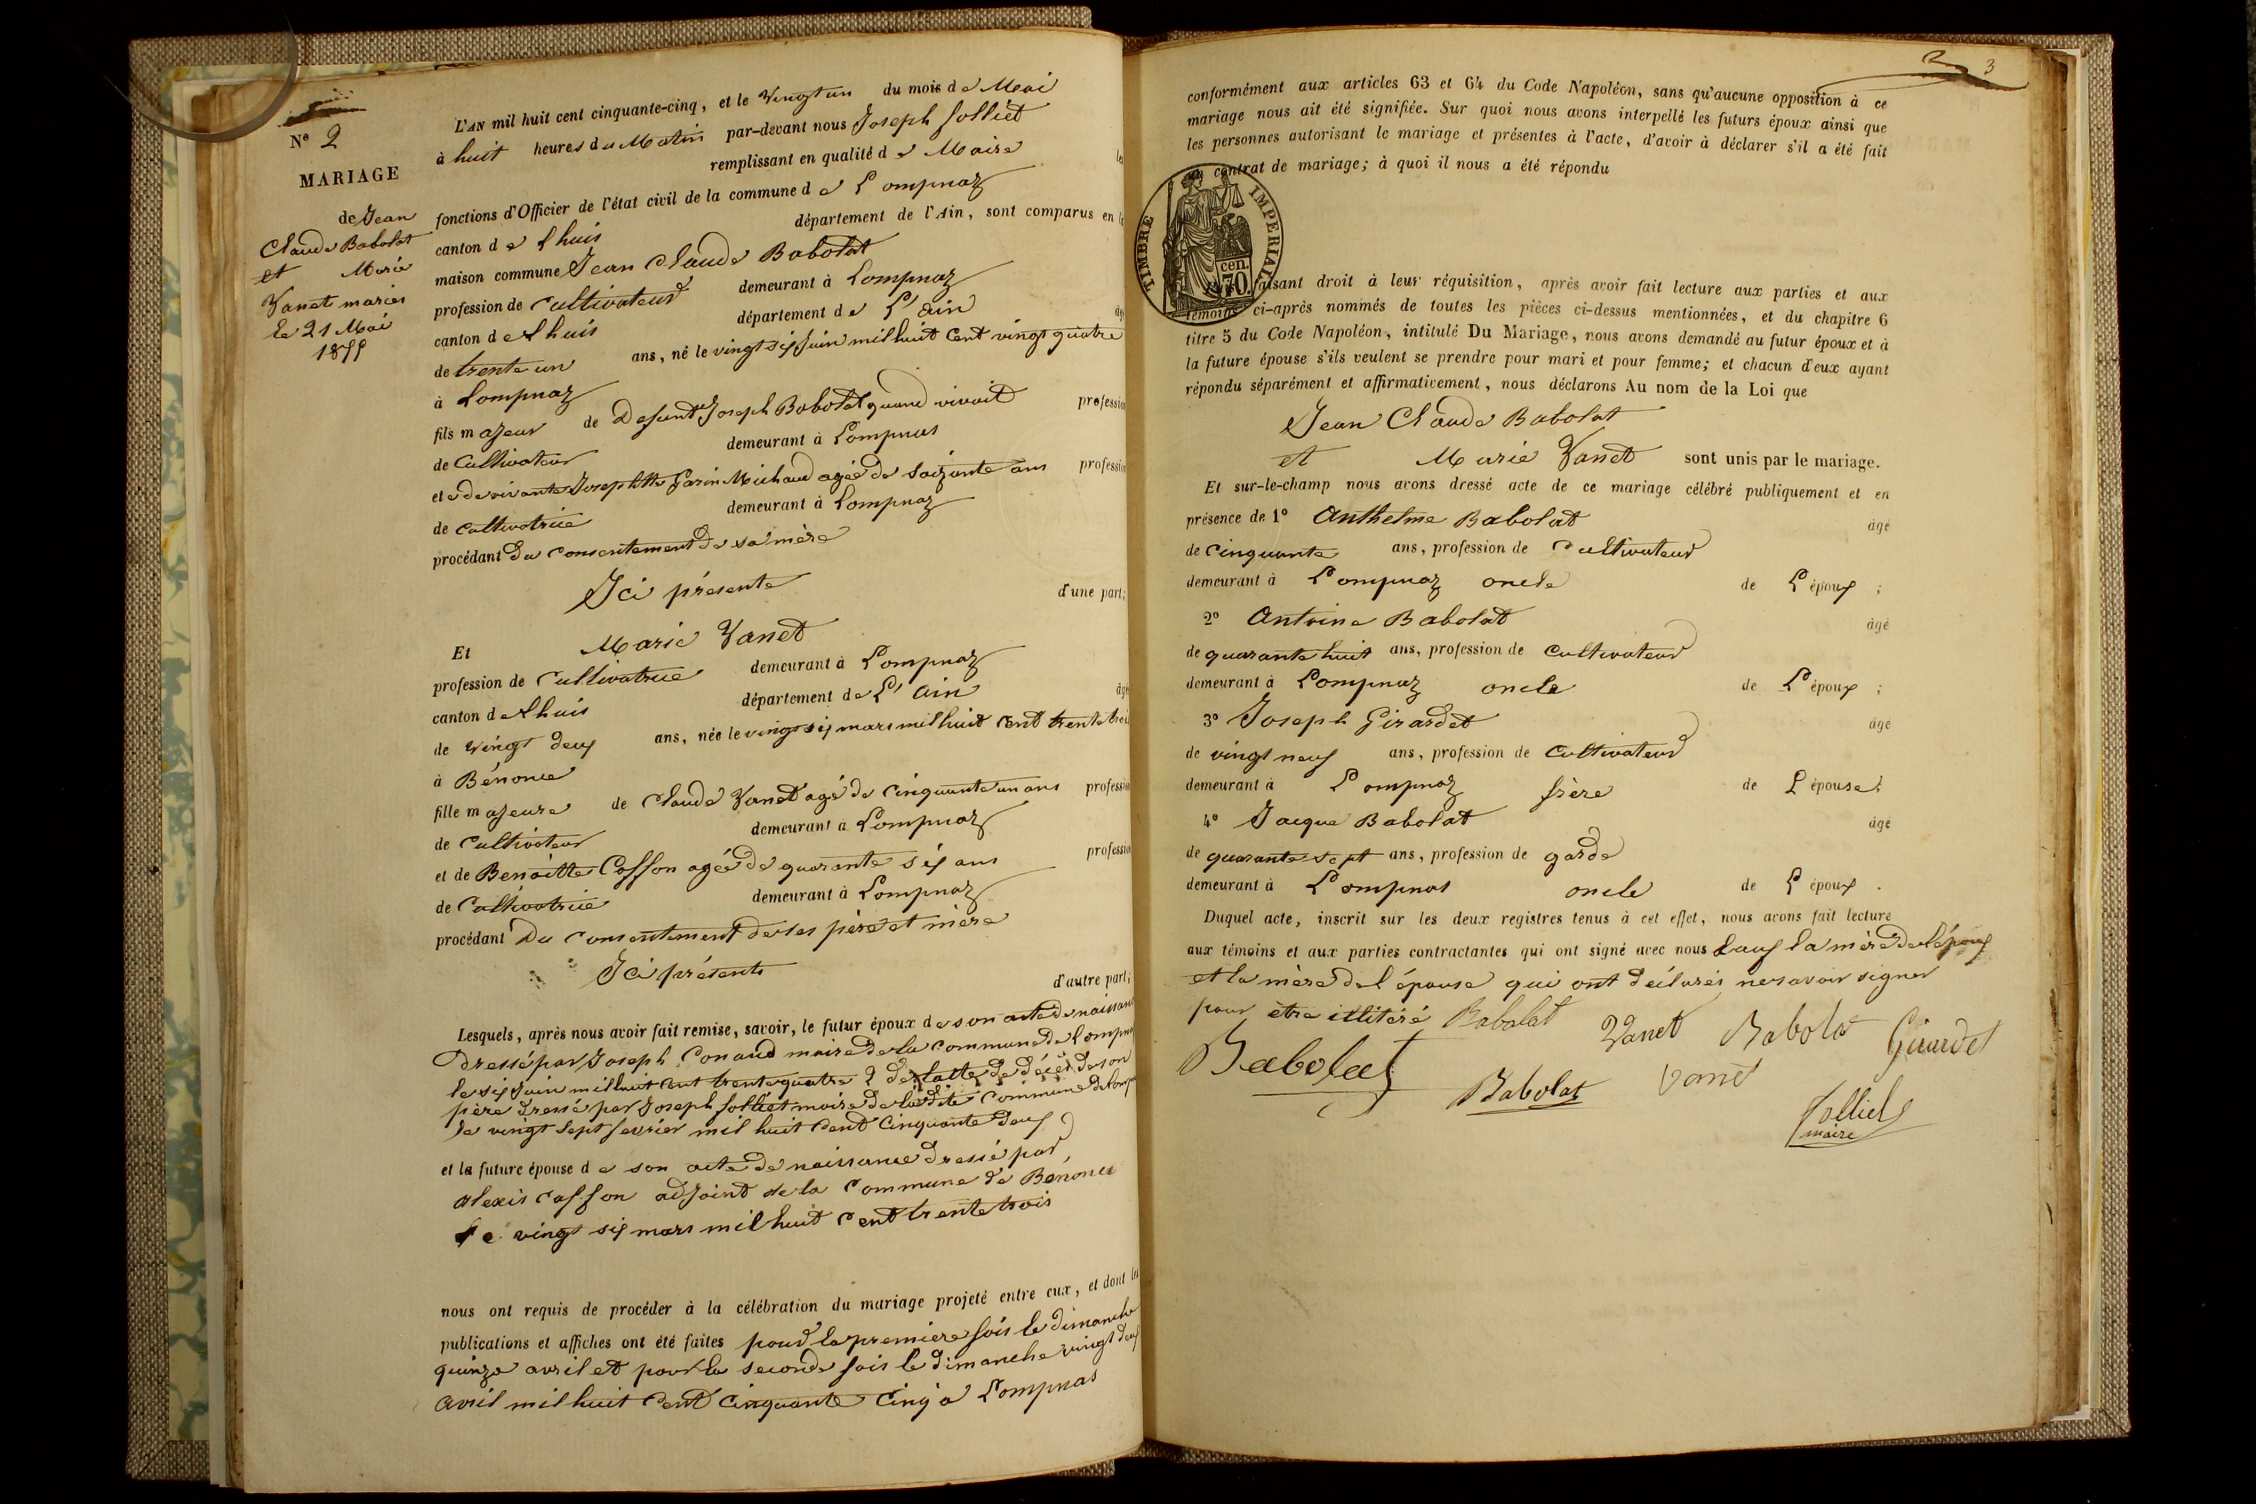 N° 2
MARIAGE
de Jean
Claude Babolat
et Marie
Vanet mariés
le 21 Mai
1855
L'AN mil huit cent cinquante-cinq, et le Vingt un du mois de Mai
à huit heures du Matin par-devant nous Joseph Jolliet
remplissant en qualité de Maire les
fonctions d'Officier de l'état civil de la commune de Lompnaz
canton de Lhuis département de l'Ain, sont comparus en la
maison commune Jean Claude Babolat
profession de Cultivateur demeurant à Lompnaz
canton de Lhuis département de L'ain âgé
de trente un ans, né le vingt six Juin mil huit cent vingt quatre
à Lompnaz
fils majeur de Defunt Joseph Babolat quand vivait profession
de Cultivateur demeurant à Lompnas
et de vivante Josephtte Garin Michaud agée de soixante ans profession
de cultivatrice demeurant à Lompnaz
procédant du consentement de sa mère
Ici présente d'une part;
Et Marie Vanet
profession de Cultivatrice demeurant à Lompnaz
canton de Lhuis département de L'ain âgé
de vingt deux ans, née le vingt six mars mil huit cent trente trois
à Bénonce
fille majeure de Claude Vanet agé de cinquante un ans profession
de Cultivateur demeurant à Lompnaz
et de Benoitte Casson agée de quarante six ans profession
de Cultivatrice demeurant à Lompnaz
procédant Du consentement de ses père et mère
Ici présents d'autre part;
Lesquels, après nous avoir fait remise, savoir, le futur époux de son acte de naissance
dressé par Joseph Conand maire de la commune de Lompnas
le six Juin mil huit cent trente quatre 2 de l'acte de décès de son
père dressé par Joseph Jolliet maire de la dite commune de Lompnas
le vingt sept fevrier mil huit cent cinquante deux
et la future épouse de son acte de naissance dressé par
alexis casson adjoint de la commune de Bénonce
le vingt six mars mil huit cent trente trois
nous ont requis de procéder à la célébration du mariage projeté entre eux, et dont les
publications et affiches ont été faites pour la premiere fois le dimanche
quinze avril et pour la seconde fois le dimanche vingt deux
avril mil huit cent cinquante cinq à Lompnas
2 3
conformément aux articles 63 et 64 du Code Napoléon, sans qu'aucune opposition à ce
mariage nous ait été signifiée. Sur quoi nous avons interpellé les futurs époux ainsi que
les personnes autorisant le mariage et présentes à l'acte, d'avoir à déclarer s'il a été fait
un contrat de mariage; à quoi il nous a été répondu
TIMBRE IMPERIAL
70. cen.
faisant droit à leur réquisition, après avoir fait lecture aux parties et aux
témoins ci-après nommés de toutes les pièces ci-dessus mentionnées, et du chapitre 6
titre 5 du Code Napoléon, intitulé Du Mariage, nous avons demandé au futur époux et à
la future épouse s'ils veulent se prendre pour mari et pour femme; et chacun d'eux ayant
répondu séparément et affirmativement, nous déclarons Au nom de la Loi que
Jean Claude Babolat
et Marie Vanet sont unis par le mariage.
Et sur-le-champ nous avons dressé acte de ce mariage célébré publiquement et en
présence de 1° Anthelme Babolat âgé
de cinquante ans, profession de Cultivateur
demeurant à Lompnaz oncle de L'époux ;
2° Antoine Babolat âgé
de quarante huit ans, profession de Cultivateur
demeurant à Lompnaz oncle de L'époux ;
3° Joseph Girardet âgé
de vingt neuf ans, profession de Cultivateur
demeurant à Lompnaz frère de L'épouse ;
4° Jacque Babolat âgé
de quarante sept ans, profession de garde
demeurant à Lompnas oncle de L'époux .
Duquel acte, inscrit sur les deux registres tenus à cet effet, nous avons fait lecture
aux témoins et aux parties contractantes qui ont signé avec nous sauf la mère de l'époux
et la mère de l'épouse qui ont déclarés ne savoir signer
pour être illitéré Babolat Vanet Babolat Girardet
Babolat Babolat Vanet
Jolliet
maire